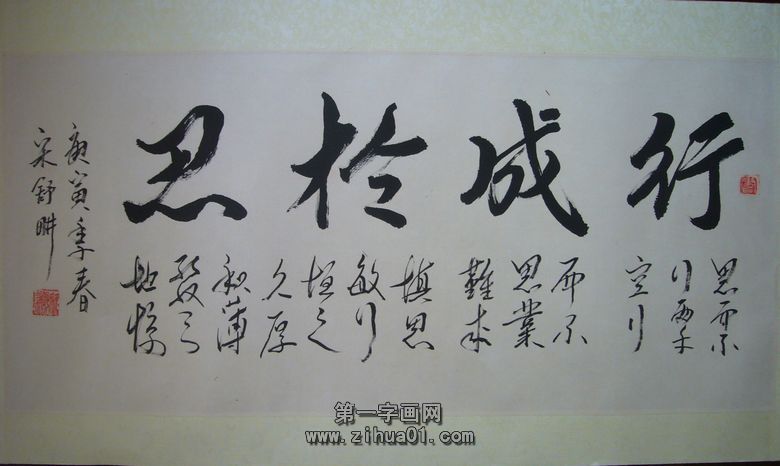 行成於思
思而不
行两手
空行
而不
思業
難成
慎思
敏行
恒之
久厚
积薄
發天
地惊
庚寅季春
宋舒畊
第一字画网
www.zihua01.com